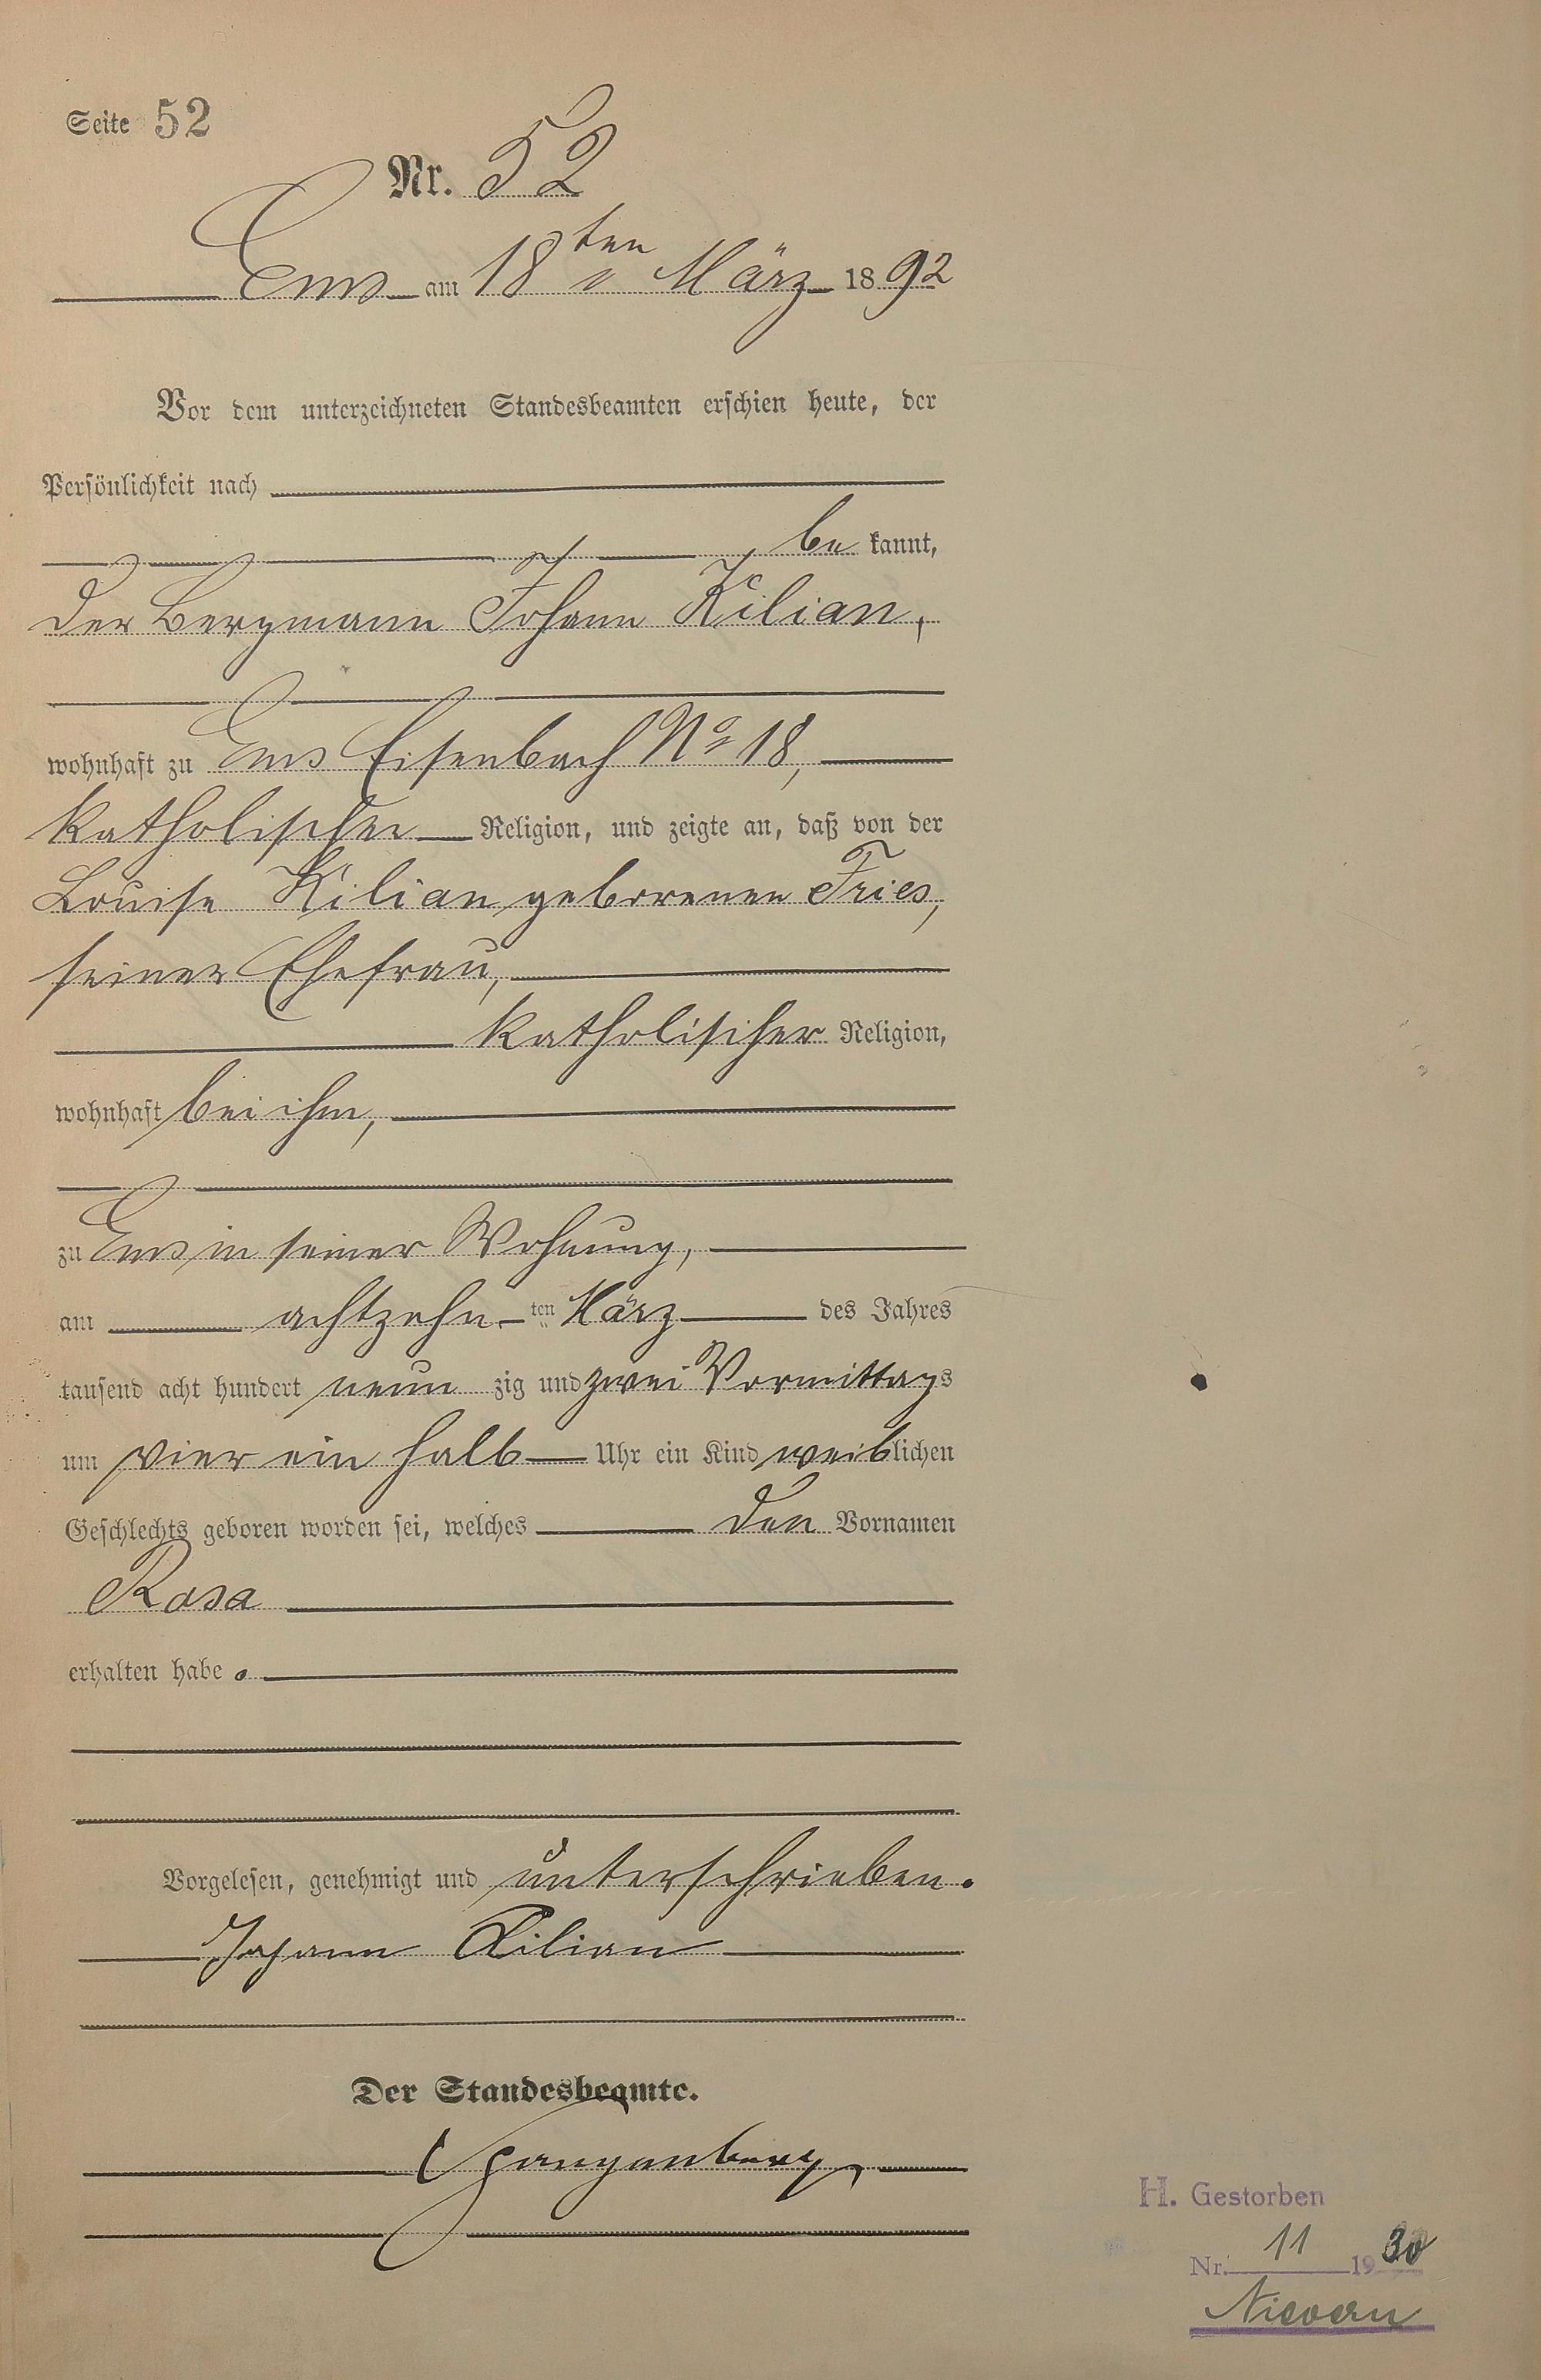 Seite 52
Nr. 52
Ems am 18ten März 1892
Vor dem unterzeichneten Standesbeamten erschien heute, der
Persönlichkeit nach
bekannt,
der Bergmann Johann Kilian,
wohnhaft zu Ems Eisenbach No 18,
katholischer Religion, und zeigte an, daß von der
Louise Kilian geborenen Fries,
seiner Ehefrau,
katholischer Religion,
wohnhaft bei ihm,
zu Ems in seiner Wohnung,
am achtzehnten März des Jahres
tausend acht hundert neunzig und zwei Vormittags
um vier ein halb Uhr ein Kind weiblichen
Geschlechts geboren worden sei, welches den Vornamen
Rosa
erhalten habe.
Vorgelesen, genehmigt und unterschrieben.
Johann Kilian
Der Standesbeamte.
H. Gestorben
Nr. 11 1930
Nievern